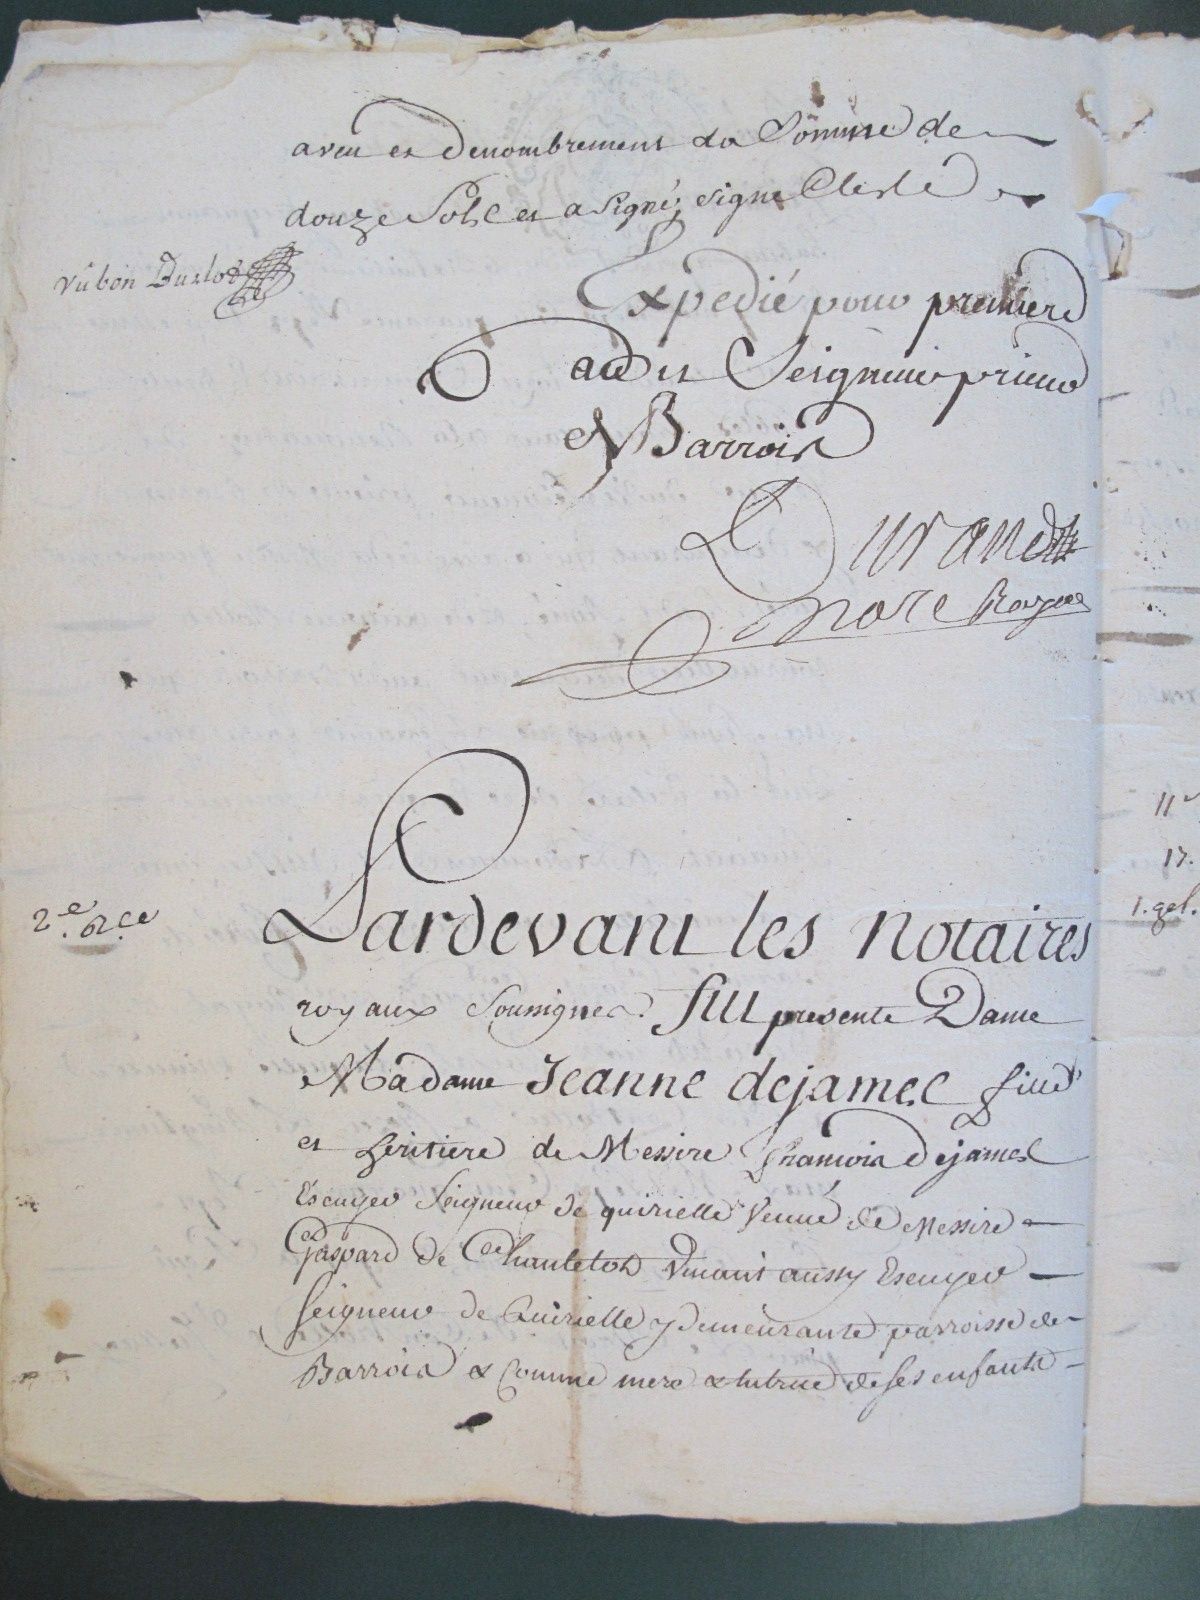 aveu et denombrement da Somme de
douze Sols et a Signé, signe
vû bon
Expedié pour premiere
audit Seigneur prieur
de Barrois
Durand
Nore Royal
2.e p.ce
Pardevant les Notaires
royaux Soussignes. fut presente Dame
Madame Jeanne dejamel fille
et heritiere de Messire francois dejamel
Escuyer Seigneur de quirielle Veuve de Messire
Gaspard de Chanteloh Vivant aussy Escuyer
Seigneur de Quirielle y demeurante parroisse de
Barrois & Comme mere & tutrice de ses enfants
11
17.
1. gel.